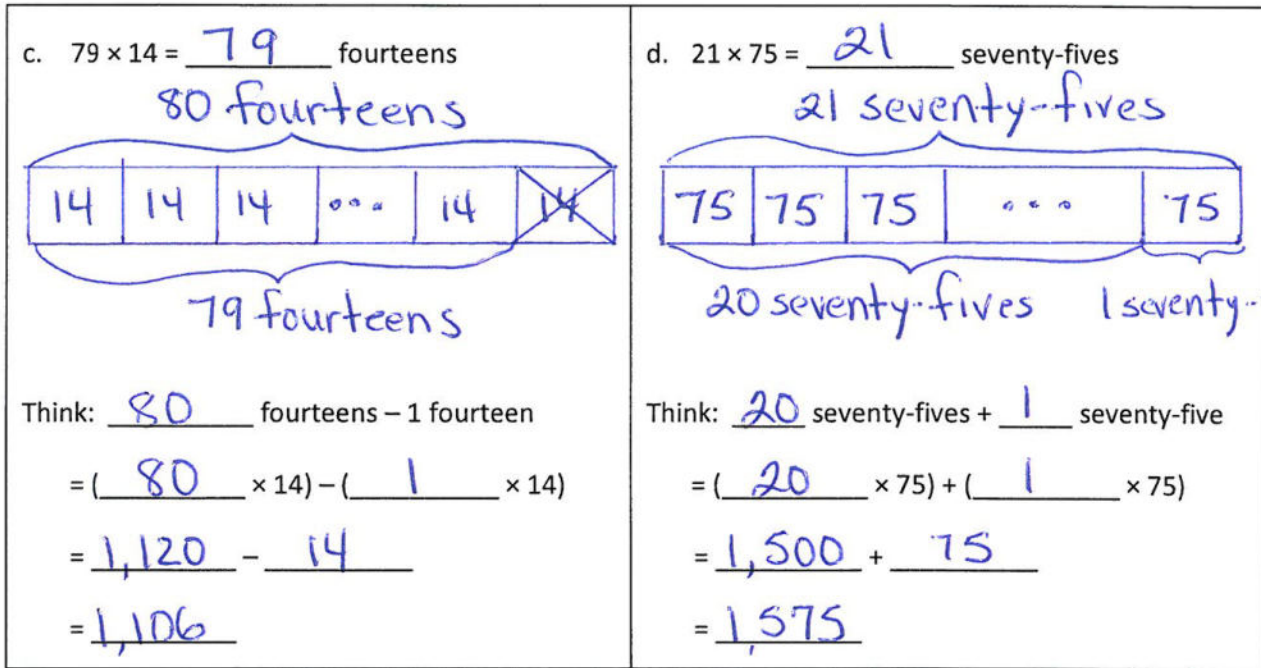 c. 79 × 14 = 79 fourteens
80 fourteens
14 14 14 ... 14 14
79 fourteens
Think: 80 fourteens – 1 fourteen
= (80 × 14) – (1 × 14)
= 1,120 – 14
= 1,106
d. 21 × 75 = 21 seventy-fives
21 seventy-fives
75 75 75 ... 75
20 seventy-fives 1 seventy-
Think: 20 seventy-fives + 1 seventy-five
= (20 × 75) + (1 × 75)
= 1,500 + 75
= 1,575